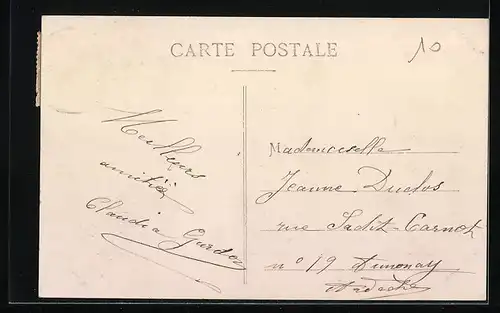 CARTE POSTALE
10
Meilleurs
amitiés
Claudia Gurdon
Mademoiselle
Jeanne Duclos
rue Sadit-Carnot
n° 19 Annonay
Ardèche